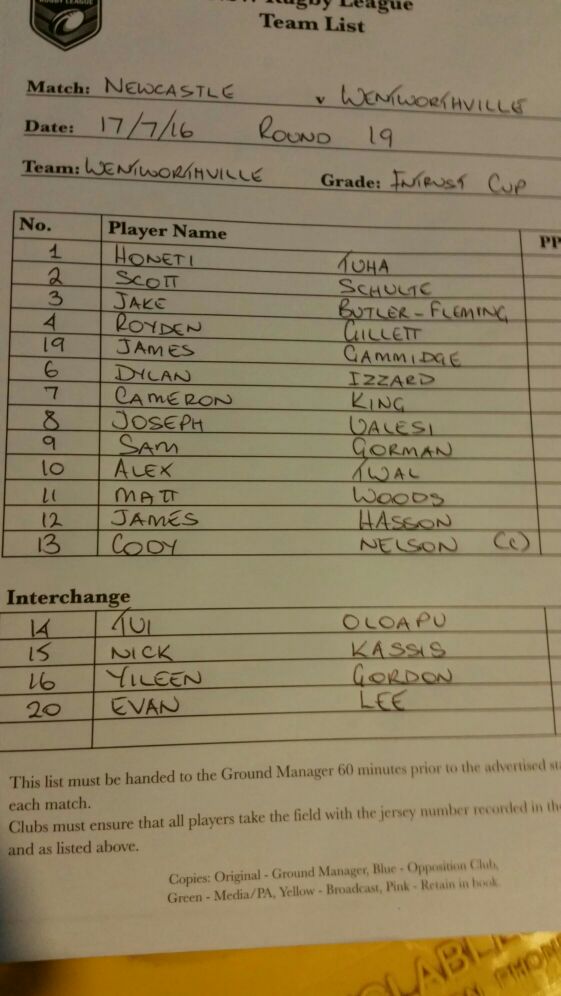 RUGBY LEAGUE
Rugby League
Team List
Match: NEWCASTLE v WENTWORTHVILLE
Date: 17/7/16 ROUND 19
Team: WENTWORTHVILLE Grade: INTRUST CUP
No. Player Name PP
1 HONETI TUHA
2 SCOTT SCHULTE
3 JAKE BUTLER-FLEMING
4 ROYDEN GILLETT
19 JAMES GAMMIDGE
6 DYLAN IZZARD
7 CAMERON KING
8 JOSEPH UALESI
9 SAM GORMAN
10 ALEX TWAL
11 MATT WOODS
12 JAMES HASSON
13 CODY NELSON (C)
Interchange
14 TUI OLOAPU
15 NICK KASSIS
16 YILEEN GORDON
20 EVAN LEE
This list must be handed to the Ground Manager 60 minutes prior to the advertised
each match.
Clubs must ensure that all players take the field with the jersey number recorded in
and as listed above.
Copies: Original - Ground Manager, Blue - Opposition Club,
Green - Media/PA, Yellow - Broadcast, Pink - Retain in book.